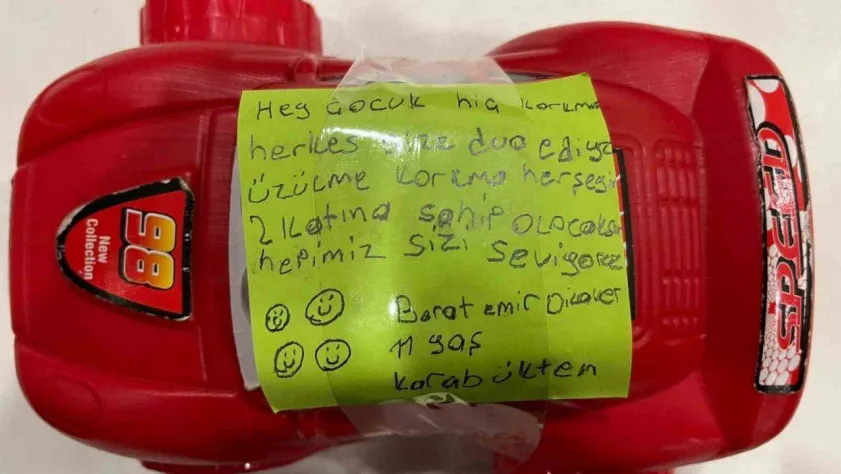 Hey Çocuk hiç korkma
herkes size dua ediyo
üzülme korkma herşeyin
2 katına sahip olacaksı
hepimiz sizi seviyoruz
Berat emir Dikaker
11 yaş
karabükten
98
New
Collection
SPEED